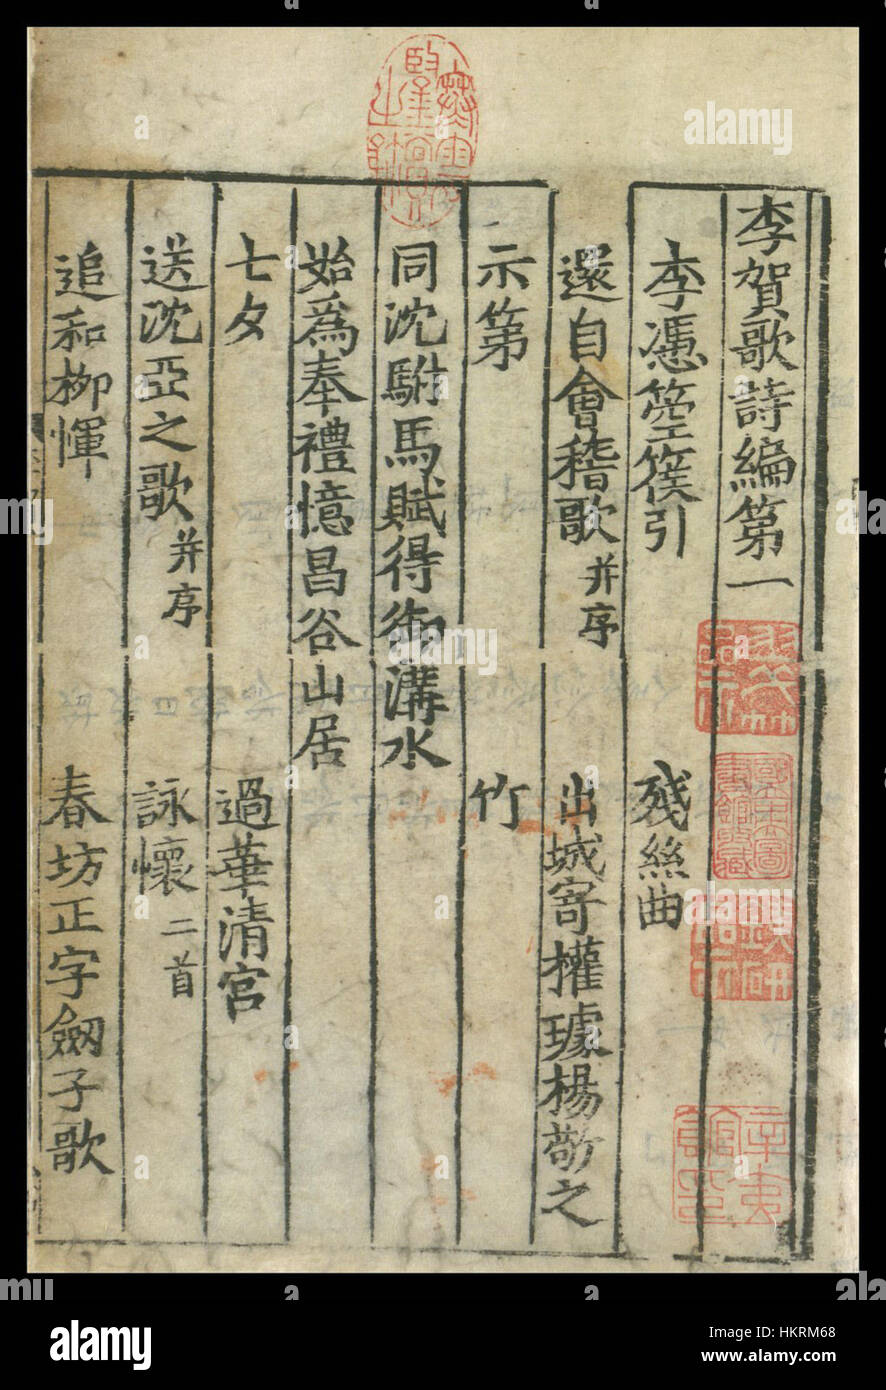 李賀歌詩編第一
李憑箜篌引 殘絲曲
還自會稽歌 并序 出城寄權璩楊敬之
示第 竹
同沈駙馬賦得御溝水
始爲奉禮憶昌谷山居
七夕 過華清宮
送沈亞之歌 并序 詠懷 二首
追和柳惲 春坊正字劒子歌
alamy
Image ID: HKRM68
www.alamy.com